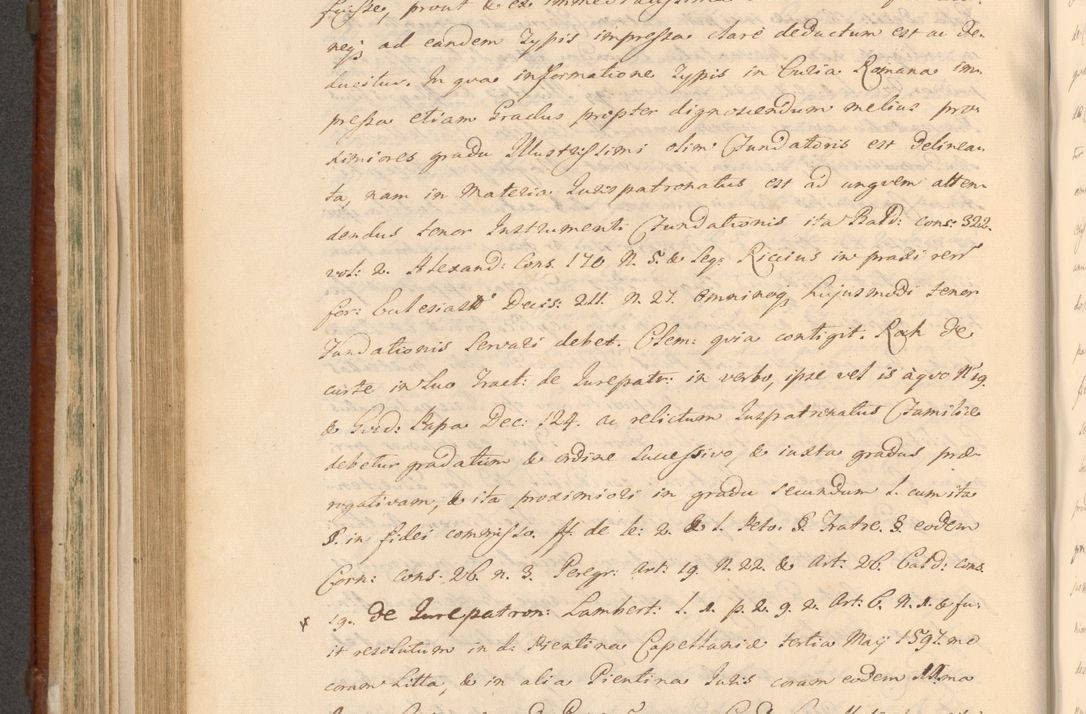 fuisse, prout & ex
neq; ad eandem Typis impressa clarè deductum est ac de-
ducitur. In qua informatione Typis in Curia Romana im-
pressa etiam Gradus propter dignoscendum melius pro-
ximiores gradu Illustrissimi olim Fundatoris est delinea-
ta, nam in Materia Jurispatronatus est ad unguem atten-
dendus tenor Instrumenti Fundationis ita Bald: cons: 322.
vol: 2. Alexand: Cons. 170 N. 5. & seq; Ricius in praxi rerr
for: Ecclesiast: Decis: 211. N. 27. omninoq; hujusmodi tenor
Fundationis servari debet. Clem: quia contigit. Roch de
curte in suo Tract: de Jurepatr: in verbo, ipse vel is à quo N. 19.
& Guid: Papa Dec: 124. ac relictum Juspatronatus Familiæ
debetur gradatum & ordine successivo, & iuxta gradus præ-
rogativam, & ita proximiori in gradu secundum l. cum ita
§. in fidei commisso. ff. de le: 2. & l. Peto. §. Fratre. § eodem
Corn: cons. 26. n. 3. Peregr: Art: 19. N. 22. & Art: 26. Cald: cons.
19. de Jurepatron: Lambert: l. 1. p. 2. q. 2. Art: 6. N. 1. & fu-
it resolutum in d: Pientina Capellaniæ tertia Maij 1597. me
coram Litta, & in alia Pientina Juris coram eodem